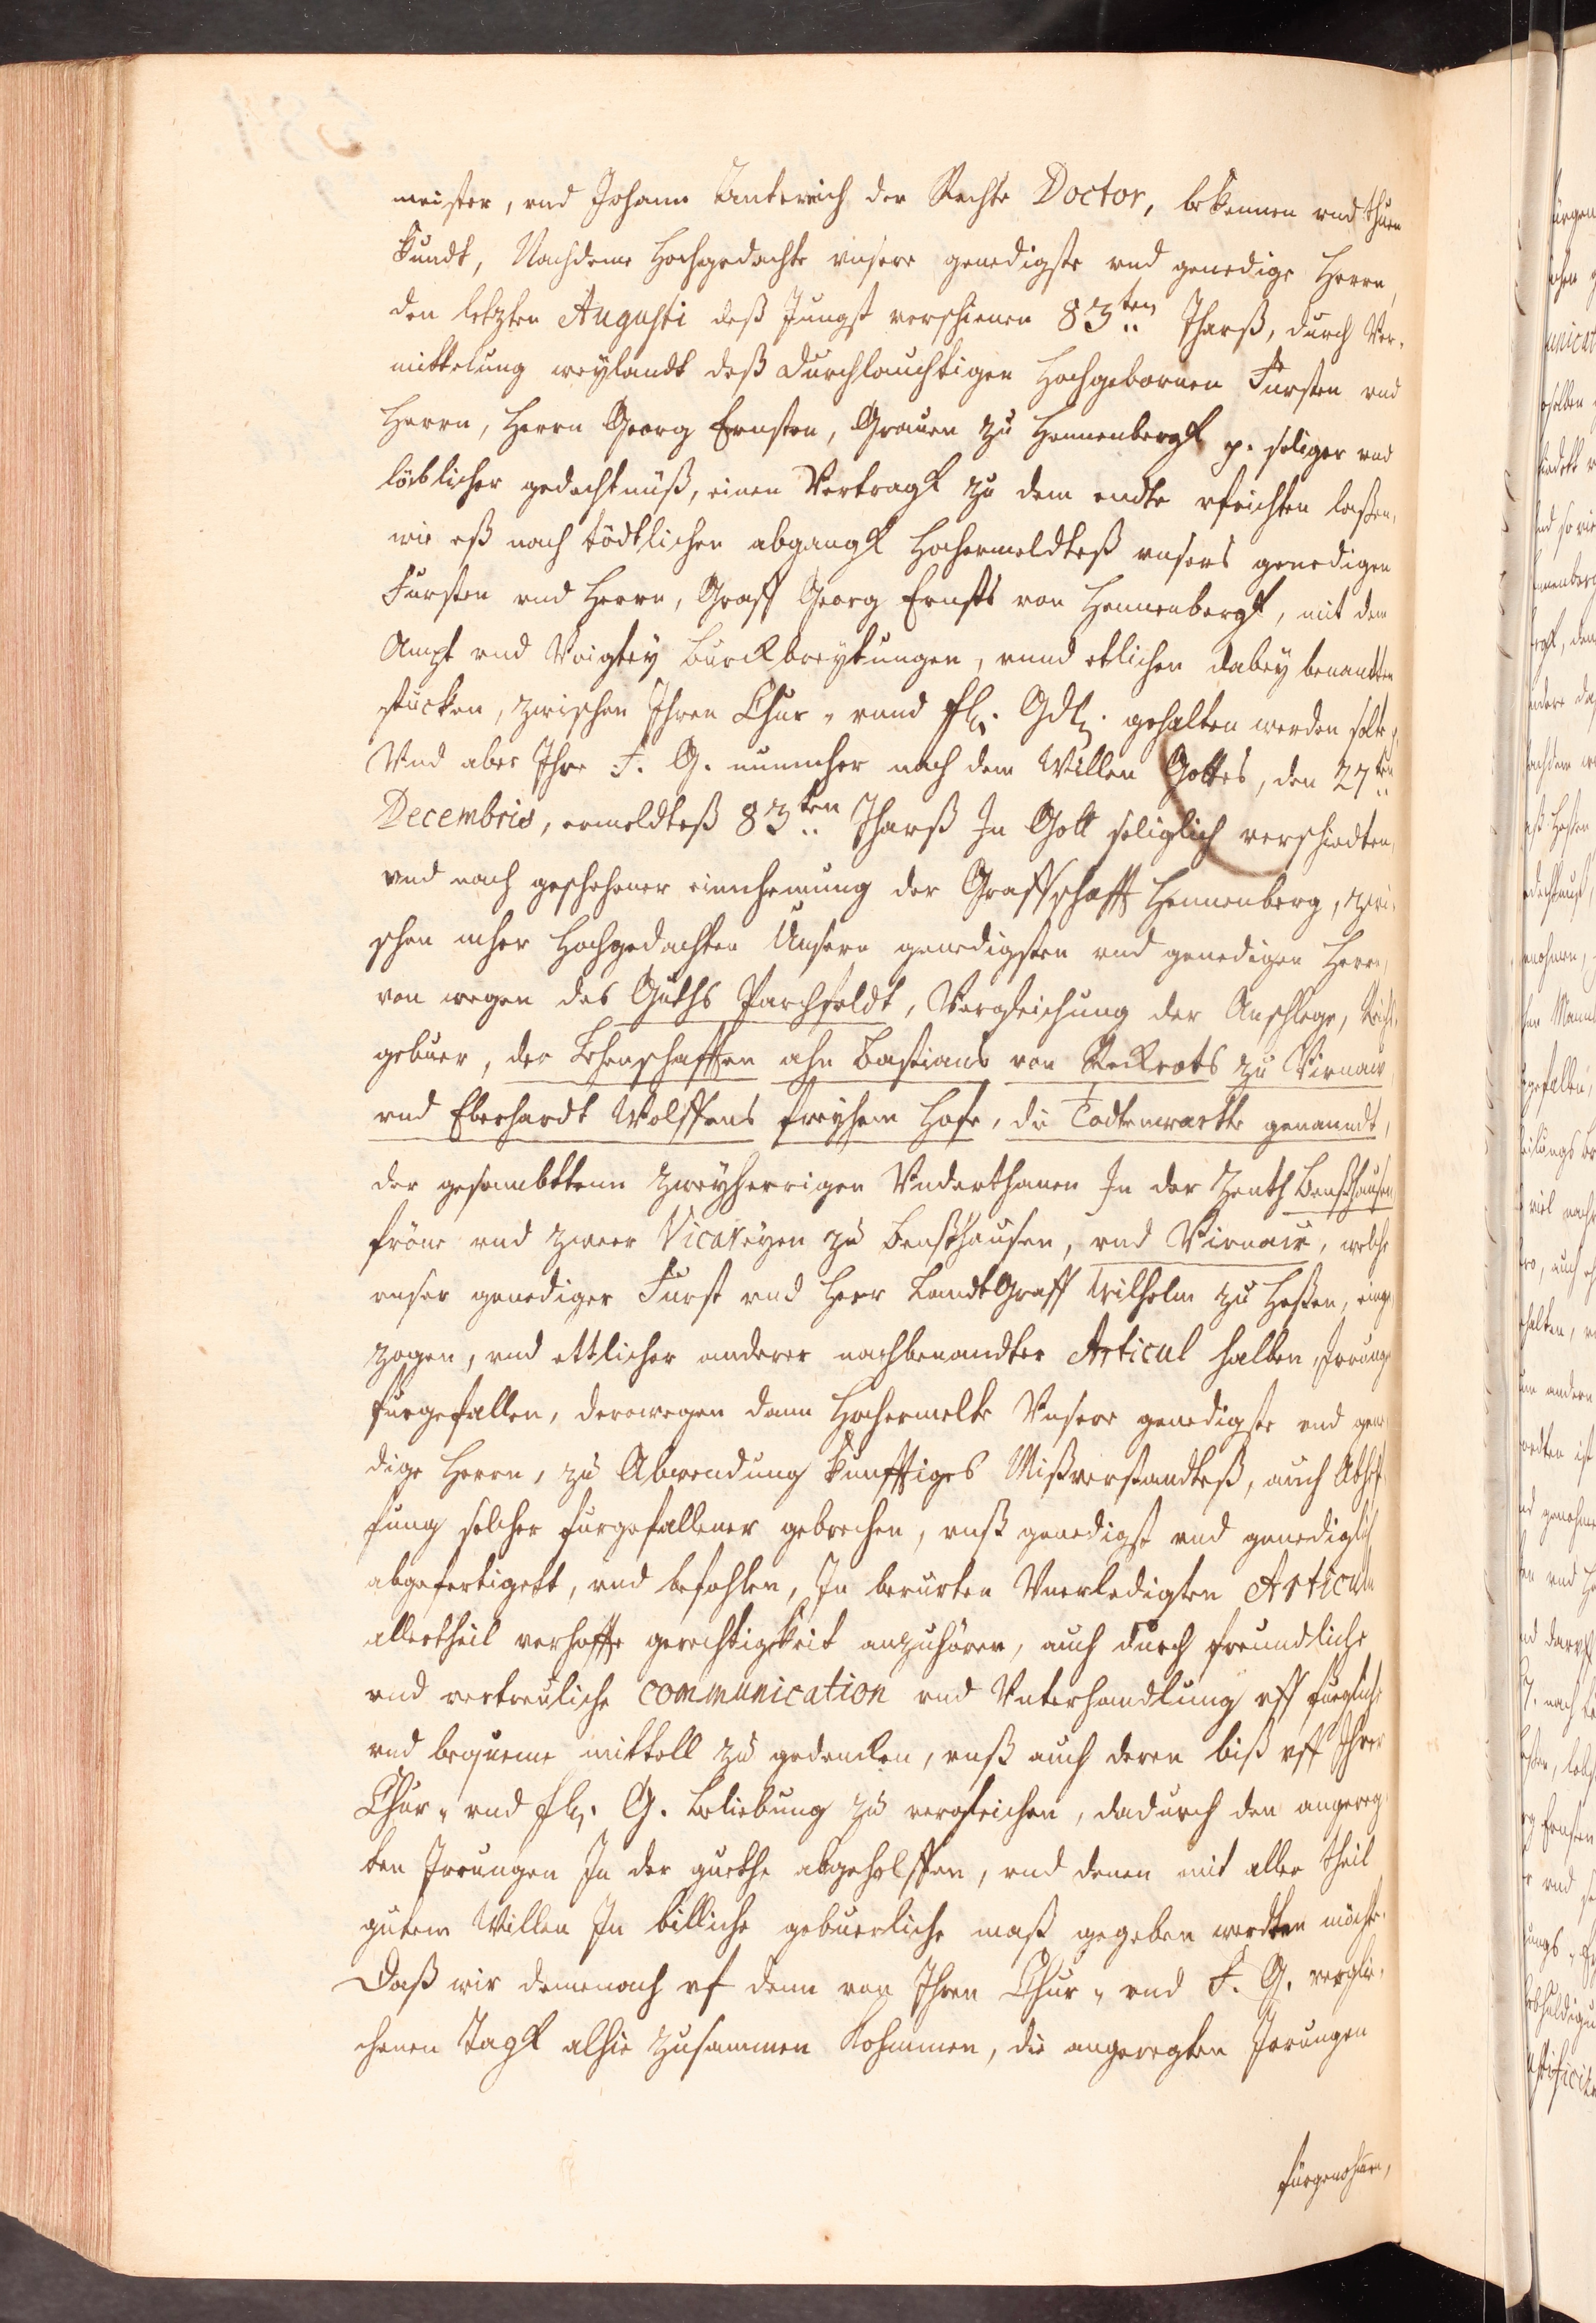 meister, vnd Johann Anterich der Rechte Doctor, bekennen vnd thuen
kundt, Nachdeme Hochgedachte vnsere genedigste vnd genedige Herrn,
den letzten Augusti deß Jungst verschienen 83ten Jharß, durch Ver-
mittelung weylandt deß Durchlauchtigen Hochgebornen Fürsten vnd
Herrn, Herrn Georg Ernsten, Grauen zu Hennenbergk p. seliger vnd
löblicher gedechtnüß, einen Vertragk zu dem endte vfrichten laßen,
wie eß nach tödtlichen abgangk Hochermeldteß vnsers genedigen
Fürsten vnd Herrn, Graff Georg Ernsts von Hennenbergk, mit dem
Ampt vnd Voigtey Burckbreytungen, vnnd etlichen dabey benandten
stucken, zwischen Ihren Chur- vnnd fl. Gdl. gehalten werden solte,
Vnd aber Ihre F. G. nunmher nach dem Willen Gottes, den 27ten
Decembris, ermeldteß 83ten Jharß In Gott seliglich verschiedten,
vnd nach geschehener einnhemung der Graffschafft Hennenberg, zwi-
schen mher Hochgedachten Unsern genedigsten vnd genedigen Herrn,
von wegen des Guths Parchfeldt, Vergleichung der Anschlege,
gebuer, der Lehenschafften ahn Bastians von Reckrots zu Virnaw
vnd Eberhardt Wolffens freyhem Hofe, die Todtenwartte genanndt,
der gesambttenn zweyherrigen Vnderthanen In der Zenth Benßhausen
fröne vnd zweer Vicareyen zu Benßhausen, vnd Virnaw, welche
vnser genediger Fürst vnd Herr LandtGraff Wilhelm zu Heßen, einge-
zogen, vnd ettlicher anderer nachbenandter Articul halben, Irrung
fürgefallen, derowegen dann Hochermelte Vnsere genedigste vnd gene-
dige Herrn, zu Abwendung kunfftiges Mißverstandteß, auch Abhelf-
fung solcher furgefallener gebrechen, vnß genedigst vnd genediglich
abgefertigett, vnd befohlen, In berurten Vnerledigten Articuln
allertheil verhoffe gerechtigkeit anzuhören, auch durch freundliche
vnd vertreuliche communication vnd Vnterhandlung vff fuegliche
vnd bequeme mittell zu gedencken, vnß auch deren biß vff Ihrer
Chur- vnd fl. G. Beliebung zu vergleichen, dadurch den angereg-
ten Irrungen In der guethe abgeholffen, vnd denen mit aller theil
gutem Willen In billiche gebuerliche maß gegeben werdten möchte.
Daß wir demenach vf denn von Ihren Chur- vnd F. G. verglie-
chenen Tagk alhie zusammen kohmmen, die angeregten Irrungen
fürgenohmen,